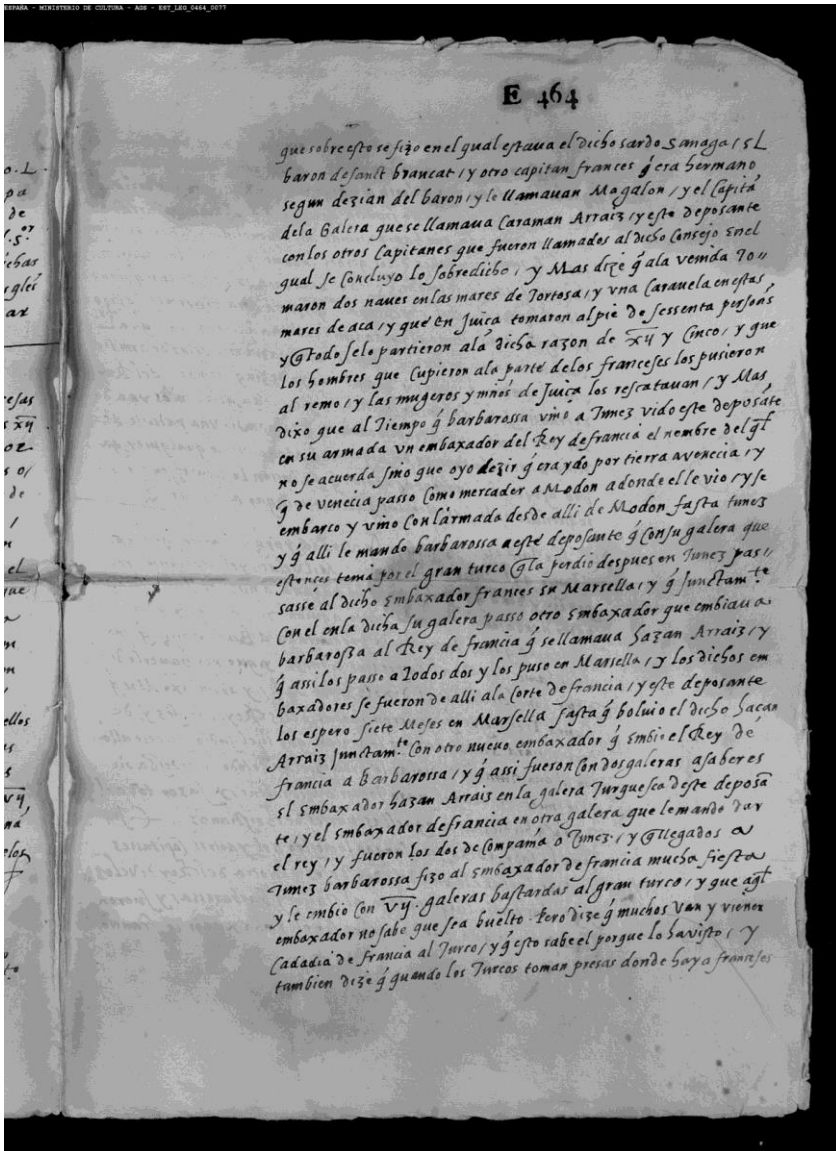 ESPAÑA - MINISTERIO DE CULTURA - AGS - EST_LEG_0464_0077
E 464
que sobre esto se fizo en el qual estava el dicho sardo Sanaga / El
baron de sanct brancat / y otro capitan frances q̃ era hermano
segun dezian del baron / y le llamauan Magalon / y el Capitã
dela Galera que se llamaua Caraman Arraiz / y este deposante
con los otros Capitanes que fueron llamados al dicho Consejo En el
qual se Concluyo lo sobredicho / y Mas dize q̃ ala venida To〃
maron dos naues en las mares de Tortosa / y vna Carauela en estas
mares de aca / y que En Juiça tomaron al pie de sessenta persoñs
y q̃ todo se lo partieron ala dicha razon de xij y Cinco / y que
los hombres que Cupieron ala parte delos franceses los pusieron
al remo / y las mugeros y mños de Juiça los rescatauan / y Mas
dixo que al Tiempo q̃ barbarossa vino a Tunez vido este deposãte
en su armada vn embaxador del Rey de francia el nembre del q̃l
no se acuerda sino que oyo dezir q̃ era ydo por tierra a venecia / y
q̃ de venecia passo Como mercader a Modon a donde el le vio / y se
embarco y vino Con larmada desde alli de Modon fasta tunez
y q̃ alli le mando barbarossa a este deposante q̃ Con su galera que
estonces tenia por el gran turco q̃ la perdio despues en Tunez pas〃
sasse al dicho Embaxador frances En Marsella / y q̃ Junctam.te
Con el en la dicha su galera passo otro Embaxador que embiaua
barbarossa al Rey de francia q̃ se llamaua hazan Arraiz / y
q̃ assi los passo a Todos dos y los puso en Marsella / y los dichos em
baxadores se fueron de alli ala Corte de francia / y este deposante
los espero siete Meses en Marsella fasta q̃ boluio el dicho haçan
Arraiz Junctam.te Con otro nueuo embaxador q̃ embio el Rey de
francia a Barbarossa / y q̃ assi fueron Con dos galeras a saber es
El Embaxador hazan Arraiz en la galera Turquesca deste deposã
te / y el Embaxador de francia en otra galera que le mando dar
el rey / y fueron los dos de Compañia a Tunez / y q̃ llegados a
Tunez barbarossa fizo al Embaxador de francia mucha fiesta
y le embio Con vij galeras bastardas al gran turco / y que aq̃l
embaxador no sabe que sea buelto. Pero dize q̃ muchos van y vienen
Cada dia de francia al Turco / y q̃ esto sabe el porque lo ha visto / y
tambien dize q̃ quando los Turcos toman presas donde haya franceses